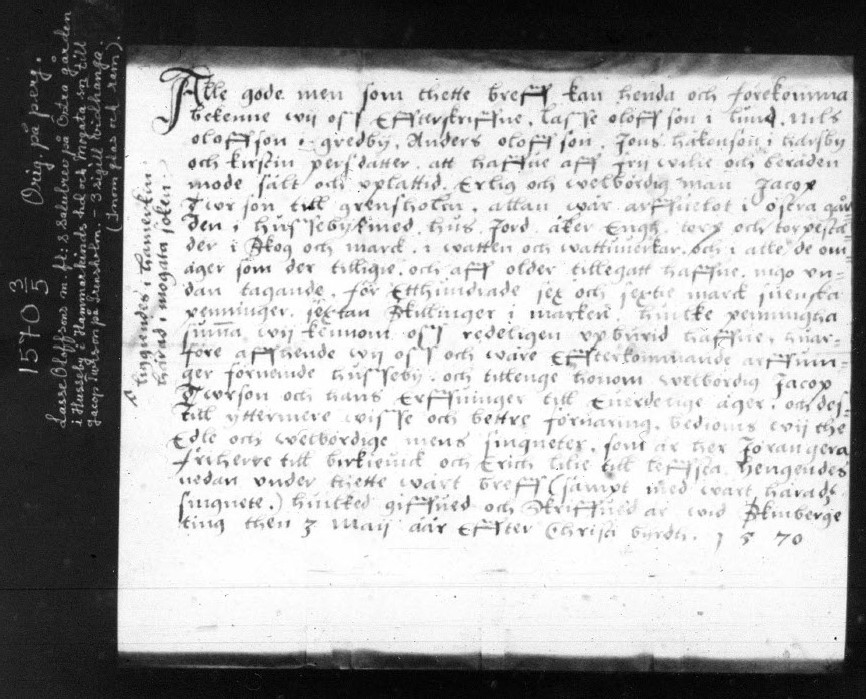 1570 3/5
Orig. på perg.
Lasse Oloffsons m. fl:s Salubrev på Östra gården
i Husseby i Hammarkinds hd och Mogata sn till
Jacop Turson på Grensholm. – 3 sigill vidhänga.
(Inom glas och ram).
Alle gode men som thette breff kan henda och förekomma
bekenne wii oss Effterskriffne, Lasse oloffson i lund, Nils
oloffson i gredby, Anders oloffson, Jons håkonson i harsby
och kirstin persdatter, att haffue aff frij wilie och beråden
mode sålt och uplattid Erlig och welbördig man Jacop
Turson till grensholm, allan wår arffuelot i östra går-
den i hussebÿ med hus, Jord, åker Engh, torp och torpestä-
der i Skog och marck, i watten och wattuuerkar, och i alle de ou-
äger som der tilligie, och aff older tillegatt haffue, ingo un-
dan tagande, för Etthundrade sex och sextie marck suenska
penninger, sextan Skillinger i marken, huilke penningha
suma wij kennom oss redeligen upburid haffue, huar-
före affhende wij oss och wåre Effterkommande arffuin-
ger förneinde husseby, och tillenge honom welbördig Jacop
Turson och hans Erffuinger till Euerdelige äger, och des-
till yttermere wisse och bettre föruaring, bedioms wij the
Edle och welbördige mens singneter, som är her Jöran gera
friherre till birkeuick och Erich lilie till teffsta, hengendes
nedan under thette wårt breff (sampt med wårt härads
singnete.) huilked giffued och Skriffued är wid Skinberge
ting then 3 Maij åår Effter Christi byrdh. 1570
liggiendes i hamerkin
härad i mogata soken